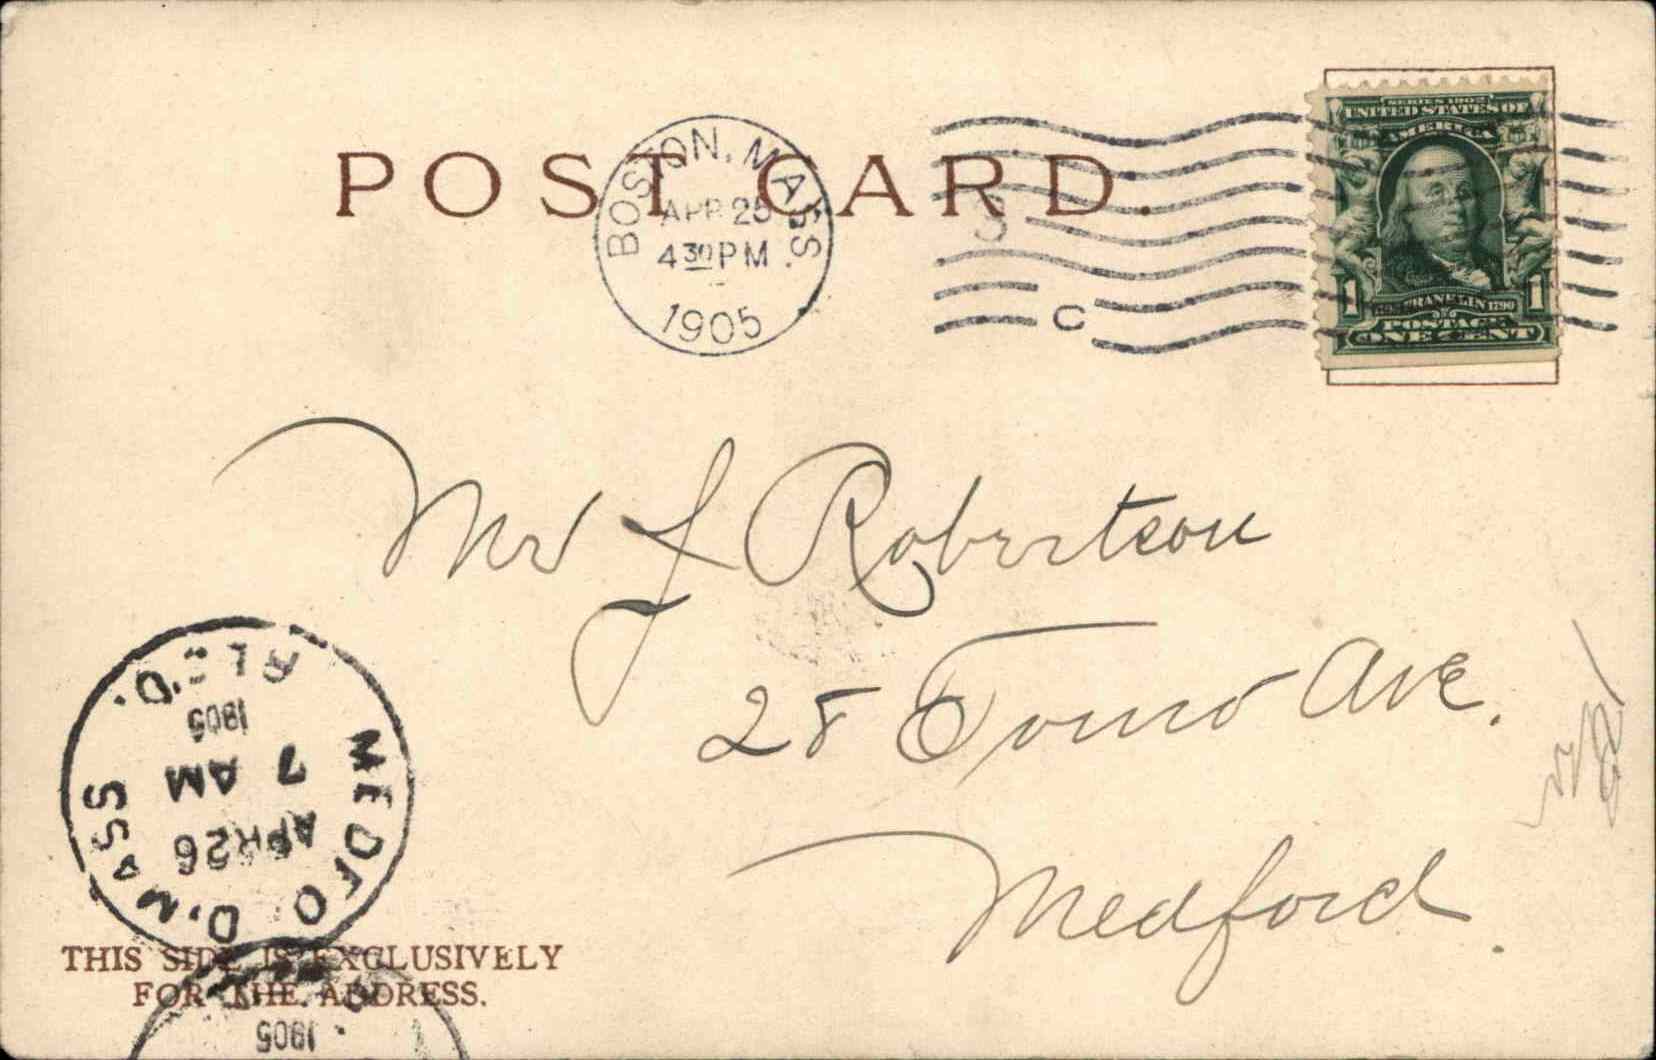 POST CARD.
BOSTON, MASS.
APR 25
4 30 PM
1905
C
SERIES 1902
UNITED STATES OF
AMERICA
FRANKLIN 1790
1 1
POSTAGE
ONE CENT
Mr J Robertson
28 Ave.
Medford.
REC'D.
1905
7 AM
APR 26
MEDFORD, MASS
THIS SIDE IS EXCLUSIVELY
FOR THE ADDRESS.
1905